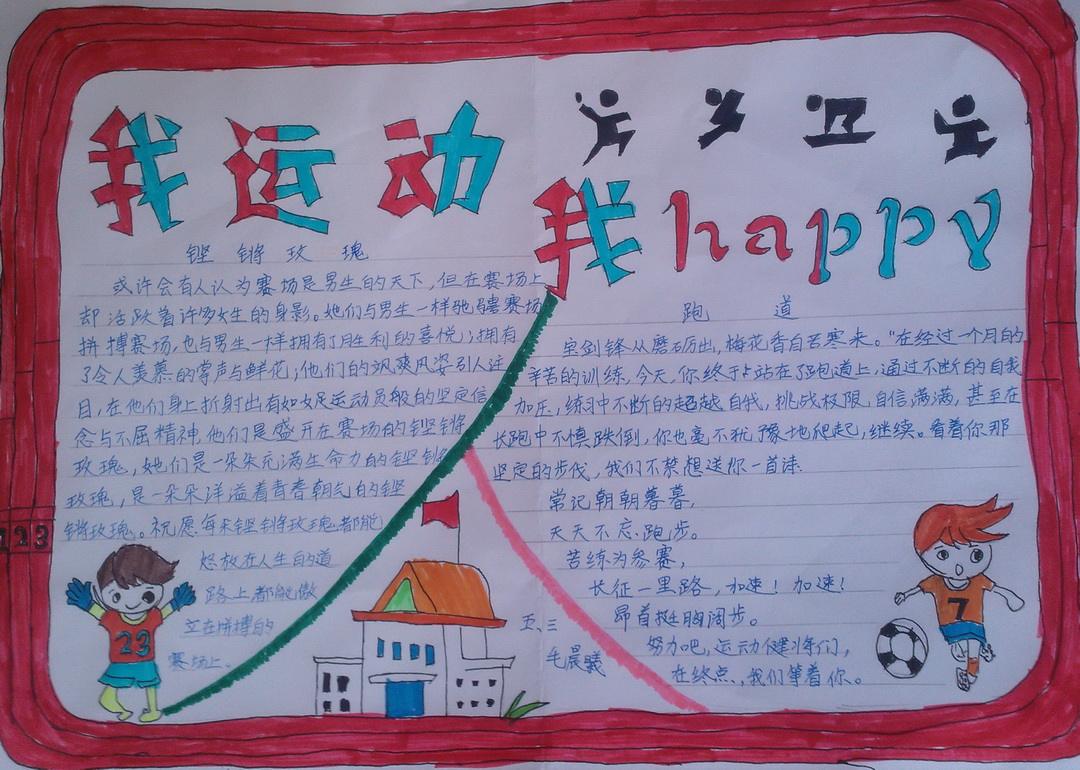 我运动
我happy
铿锵玫瑰
或许会有人认为赛场是男生的天下,但在赛场上
却活跃着许多女生的身影。她们与男生一样驰骋赛场
拼搏赛场,也与男生一样拥有了胜利的喜悦;拥有
了令人羡慕的掌声与鲜花;他们的飒爽风姿引人注
目,在他们身上折射出有如女足运动员般的坚定信
念与不屈精神,他们是盛开在赛场的铿锵
玫瑰,她们是一朵朵充满生命力的铿锵
玫瑰,是一朵朵洋溢着青春朝气的铿
锵玫瑰。祝愿每朵铿锵玫瑰都能
怒放在人生的道
路上都能傲
立在拼搏的
赛场上。
跑道
宝剑锋从磨砺出,梅花香自苦寒来。"在经过一个月的
辛苦的训练,今天,你终于站在了跑道上,通过不断的自我
加压,练习中不断的超越自我,挑战极限,自信满满,甚至在
长跑中不慎跌倒,你也毫不犹豫地爬起,继续。看着你那
坚定的步伐,我们不禁想送你一首诗:
常记朝朝暮暮,
天天不忘跑步。
苦练为参赛,
长征一里路,加速!加速!
昂首挺胸阔步。
努力吧,运动健将们,
在终点,我们等着你。
五、三
毛晨曦
123
23
7